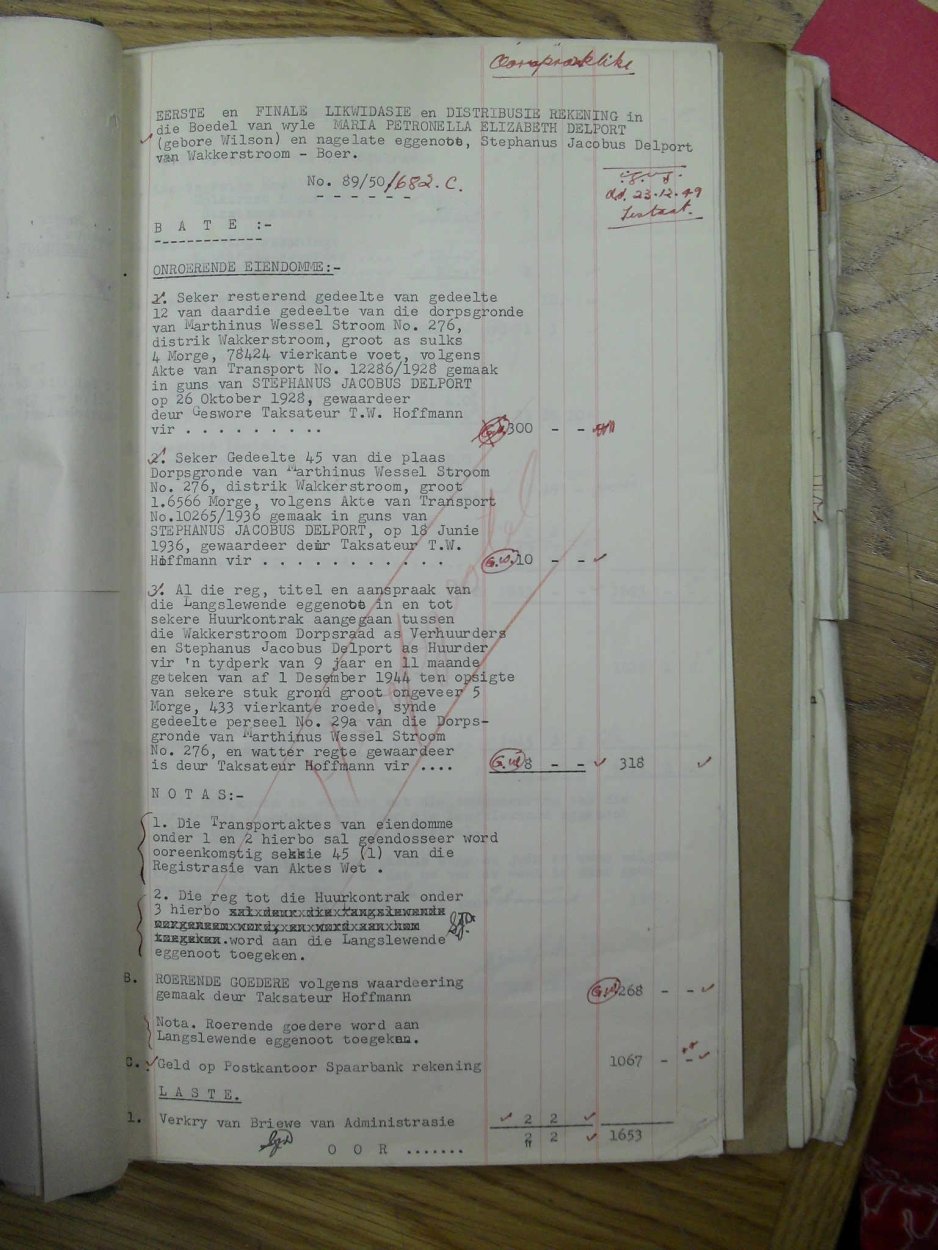 Oorspronklike
EERSTE en FINALE LIKWIDASIE en DISTRIBUSIE REKENING in
die Boedel van wyle MARIA PETRONELLA ELIZABETH DELPORT
(gebore Wilson) en nagelate eggenote, Stephanus Jacobus Delport
van Wakkerstroom - Boer.
No. 89/50/682.C.
dd. 23-12-49
Testaat.
B A T E :-
ONROERENDE EIENDOMME:-
1. Seker resterend gedeelte van gedeelte
12 van daardie gedeelte van die dorpsgronde
van Marthinus Wessel Stroom No. 276,
distrik Wakkerstroom, groot as sulks
4 Morge, 78424 vierkante voet, volgens
Akte van Transport No. 12286/1928 gemaak
in guns van STEPHANUS JACOBUS DELPORT
op 26 Oktober 1928, gewaardeer
deur Geswore Taksateur T.W. Hoffmann
vir . . . . . . . . . G.W. 300 - -
2. Seker Gedeelte 45 van die plaas
Dorpsgronde van Marthinus Wessel Stroom
No. 276, distrik Wakkerstroom, groot
1.6566 Morge, volgens Akte van Transport
No.10265/1936 gemaak in guns van
STEPHANUS JACOBUS DELPORT, op 18 Junie
1936, gewaardeer deur Taksateur T.W.
Hoffmann vir . . . . . . . . . . . G.W. 10 - -
3. Al die reg, titel en aanspraak van
die Langslewende eggenote in en tot
sekere Huurkontrak aangegaan tussen
die Wakkerstroom Dorpsraad as Verhuurders
en Stephanus Jacobus Delport as Huurder
vir 'n tydperk van 9 jaar en 11 maande
geteken van af 1 Desember 1944 ten opsigte
van sekere stuk grond groot ongeveer 5
Morge, 433 vierkante roede, synde
gedeelte perseel No. 29a van die Dorps-
gronde van Marthinus Wessel Stroom
No. 276, en watter regte gewaardeer
is deur Taksateur Hoffmann vir .... G.W. 8 - - 318
N O T A S:-
1. Die Transportaktes van eiendomme
onder 1 en 2 hierbo sal geendosseer word
ooreenkomstig seksie 45 (1) van die
Registrasie van Aktes Wet .
2. Die reg tot die Huurkontrak onder
3 hierbo
word aan die Langslewende
eggenoot toegeken.
B. ROERENDE GOEDERE volgens waardeering
gemaak deur Taksateur Hoffmann G.W. 268 - -
Nota. Roerende goedere word aan
Langslewende eggenoot toegeken.
C. Geld op Postkantoor Spaarbank rekening 1067 - -
L A S T E.
1. Verkry van Briewe van Administrasie 2 2
2 2 1653
O O R .......